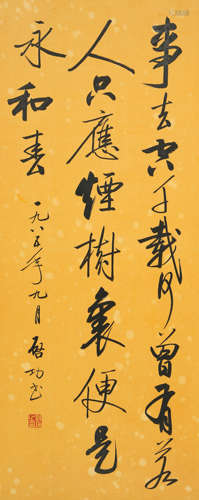 事去空千載何曾有若
人只應煙樹裏便是
永和春
一九八五年九月 啓功書